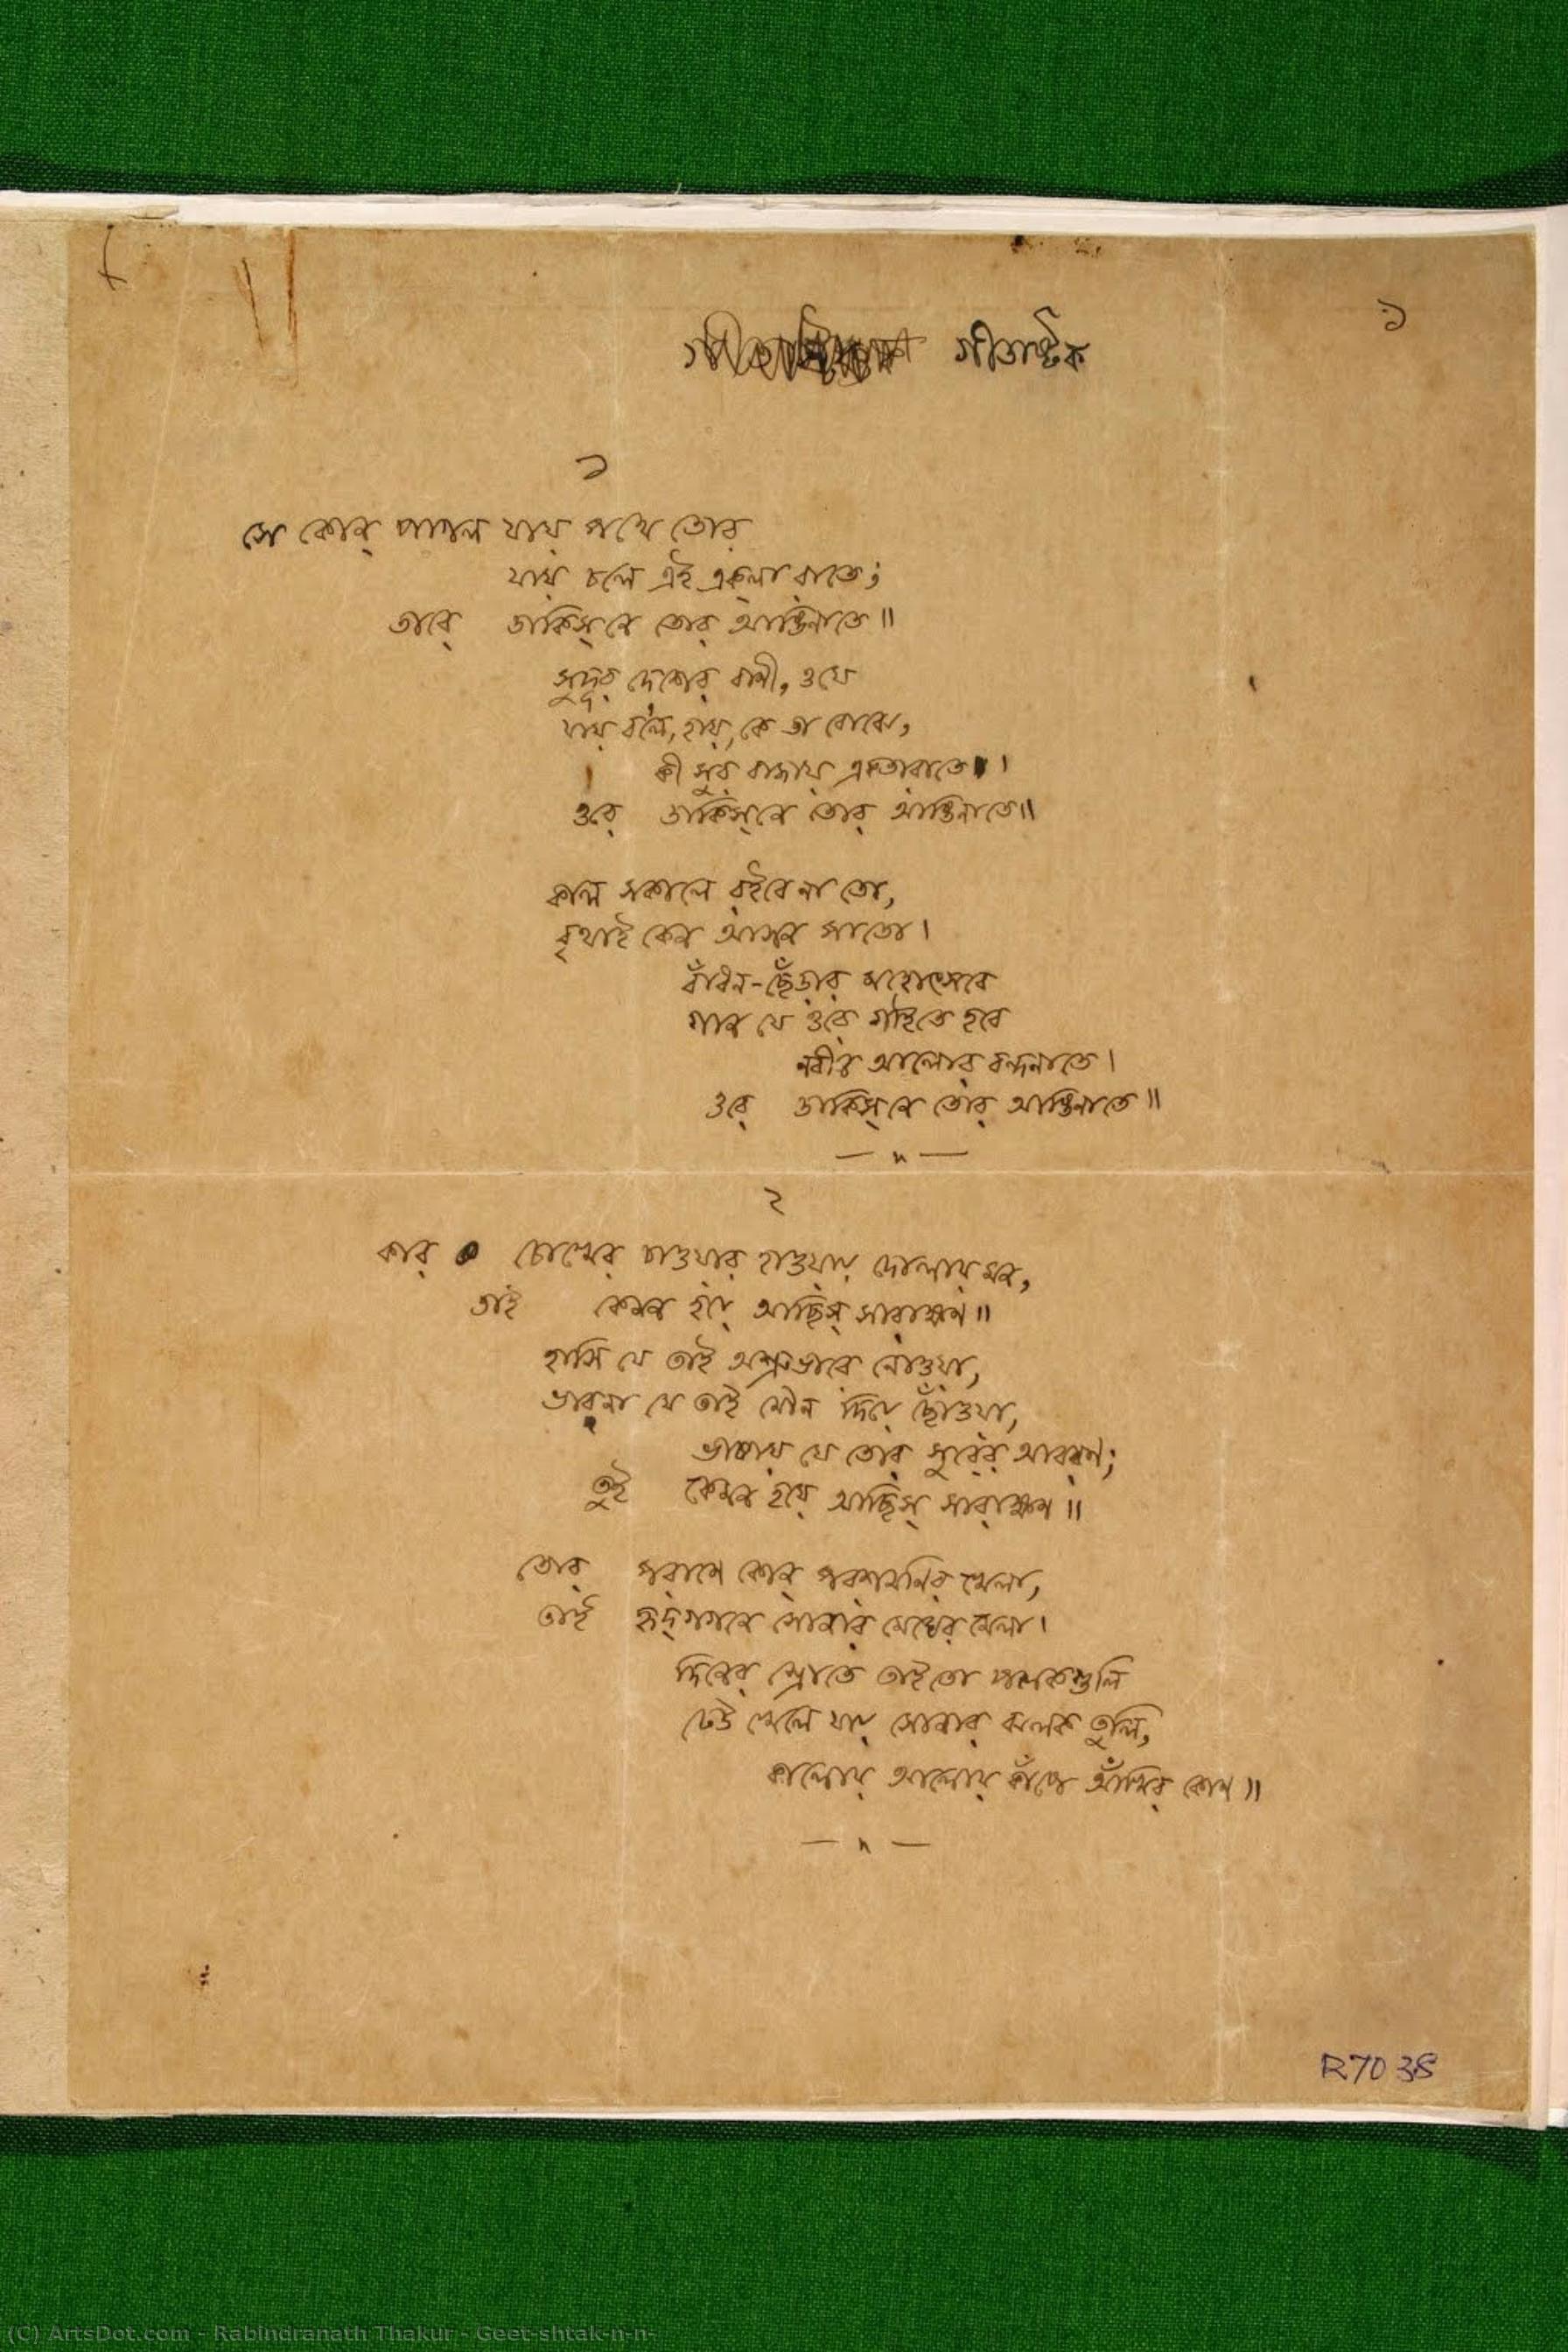 ১
গীতাষ্টক
১
সে কোন্ পাগল যায় পথে তোর
যায় চলে ঐই একলা রাতে;
তারে ডাকিস্‌নে তোর আঙিনাতে॥
সুদূর দেশের বাণী, ওযে
যায় বলে, হায়, কে তা বোঝে,
কী সুর বাজায় একতারাতে।
ওরে ডাকিস্‌নে তোর আঙিনাতে॥
কাল সকালে রইবে না তো,
বৃথাই কেন আসন পাতো।
বাঁধন-ছেঁড়ার মহোৎসবে
গান যে ওরে গাইতে হবে
নবীন আলোর বন্দনাতে।
ওরে ডাকিস্‌নে তোর আঙিনাতে॥
২
কার চোখের চাওয়ার হাওয়ায় দোলায় মন,
তাই কেমন হয়ে আছিস্ সারাক্ষণ॥
হাসি যে তাই অশ্রুভারে নোওয়া,
ভাবনা যে তাই মৌন দিয়ে ছোঁওয়া,
ভাষায় যে তোর সুরের আবরণ;
তুই কেমন হয়ে আছিস্ সারাক্ষণ॥
তোর পরাণে কোন্ পরশমনির খেলা,
তাই হৃদ্‌গগনে সোনার মেঘের মেলা।
দিনের স্রোতে তাইতো পলকগুলি
ঢেউ খেলে যায় সোনার ঝলক তুলি,
কালোয় আলোয় কাঁপে আঁখির কোণ॥
R7038
(C) ArtsDot.com - Rabindranath Thakur - Geet-shtak-n-n-